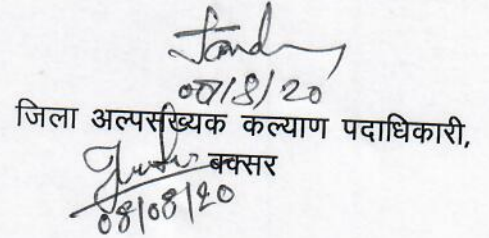 07/8/20
जिला अल्पसंख्यक कल्याण पदाधिकारी,
बक्सर
08/08/20